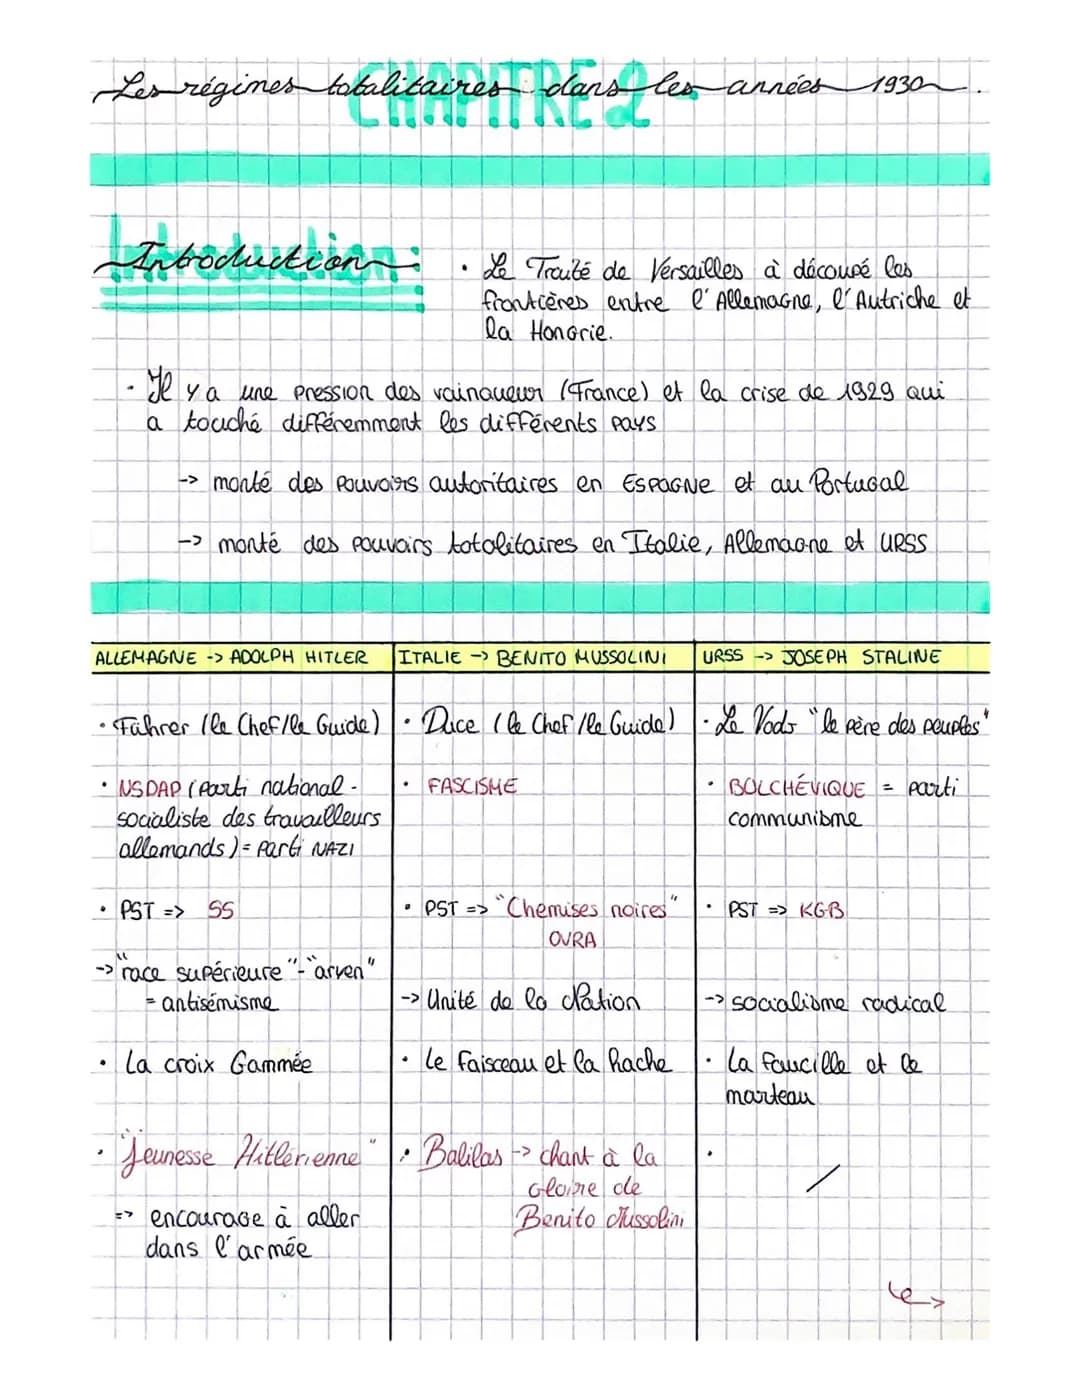 CHAPITRE 2
Les régimes totalitaires dans les années 1930.
Introduction :
• Le Traité de Versailles à découpé les
frontières entre l'Allemagne, l'Autriche et
la Hongrie.
• Il y a une pression des vainqueur (France) et la crise de 1929 qui
a touché différemment les différents pays
-> monté des pouvoirs autoritaires en ESPAGNE et au Portugal
-> monté des pouvoirs totalitaires en Italie, Allemagne et URSS
ALLEMAGNE -> ADOLPH HITLER
• Führer (le Chef/le Guide)
• NSDAP (Parti national-
socialiste des travailleurs
allemands) = Parti NAZI
• PST => SS
-> "race supérieure" - "aryen"
= antisémisme
• La croix Gammée
• "Jeunesse Hitlérienne"
=> encourage à aller
dans l'armée
ITALIE -> BENITO MUSSOLINI
• Duce (le Chef/le Guide)
• FASCISME
• PST => "Chemises noires"
OVRA
-> Unité de la Nation
• Le Faisceau et la hache
• Balilas -> chant à la
Gloire de
Benito Mussolini
URSS -> JOSEPH STALINE
• Le Vodj "le père des peuples"
• BOLCHÉVIQUE = parti
communisme
• PST => KGB
-> socialisme radical
• La Faucille et le
marteau
• /